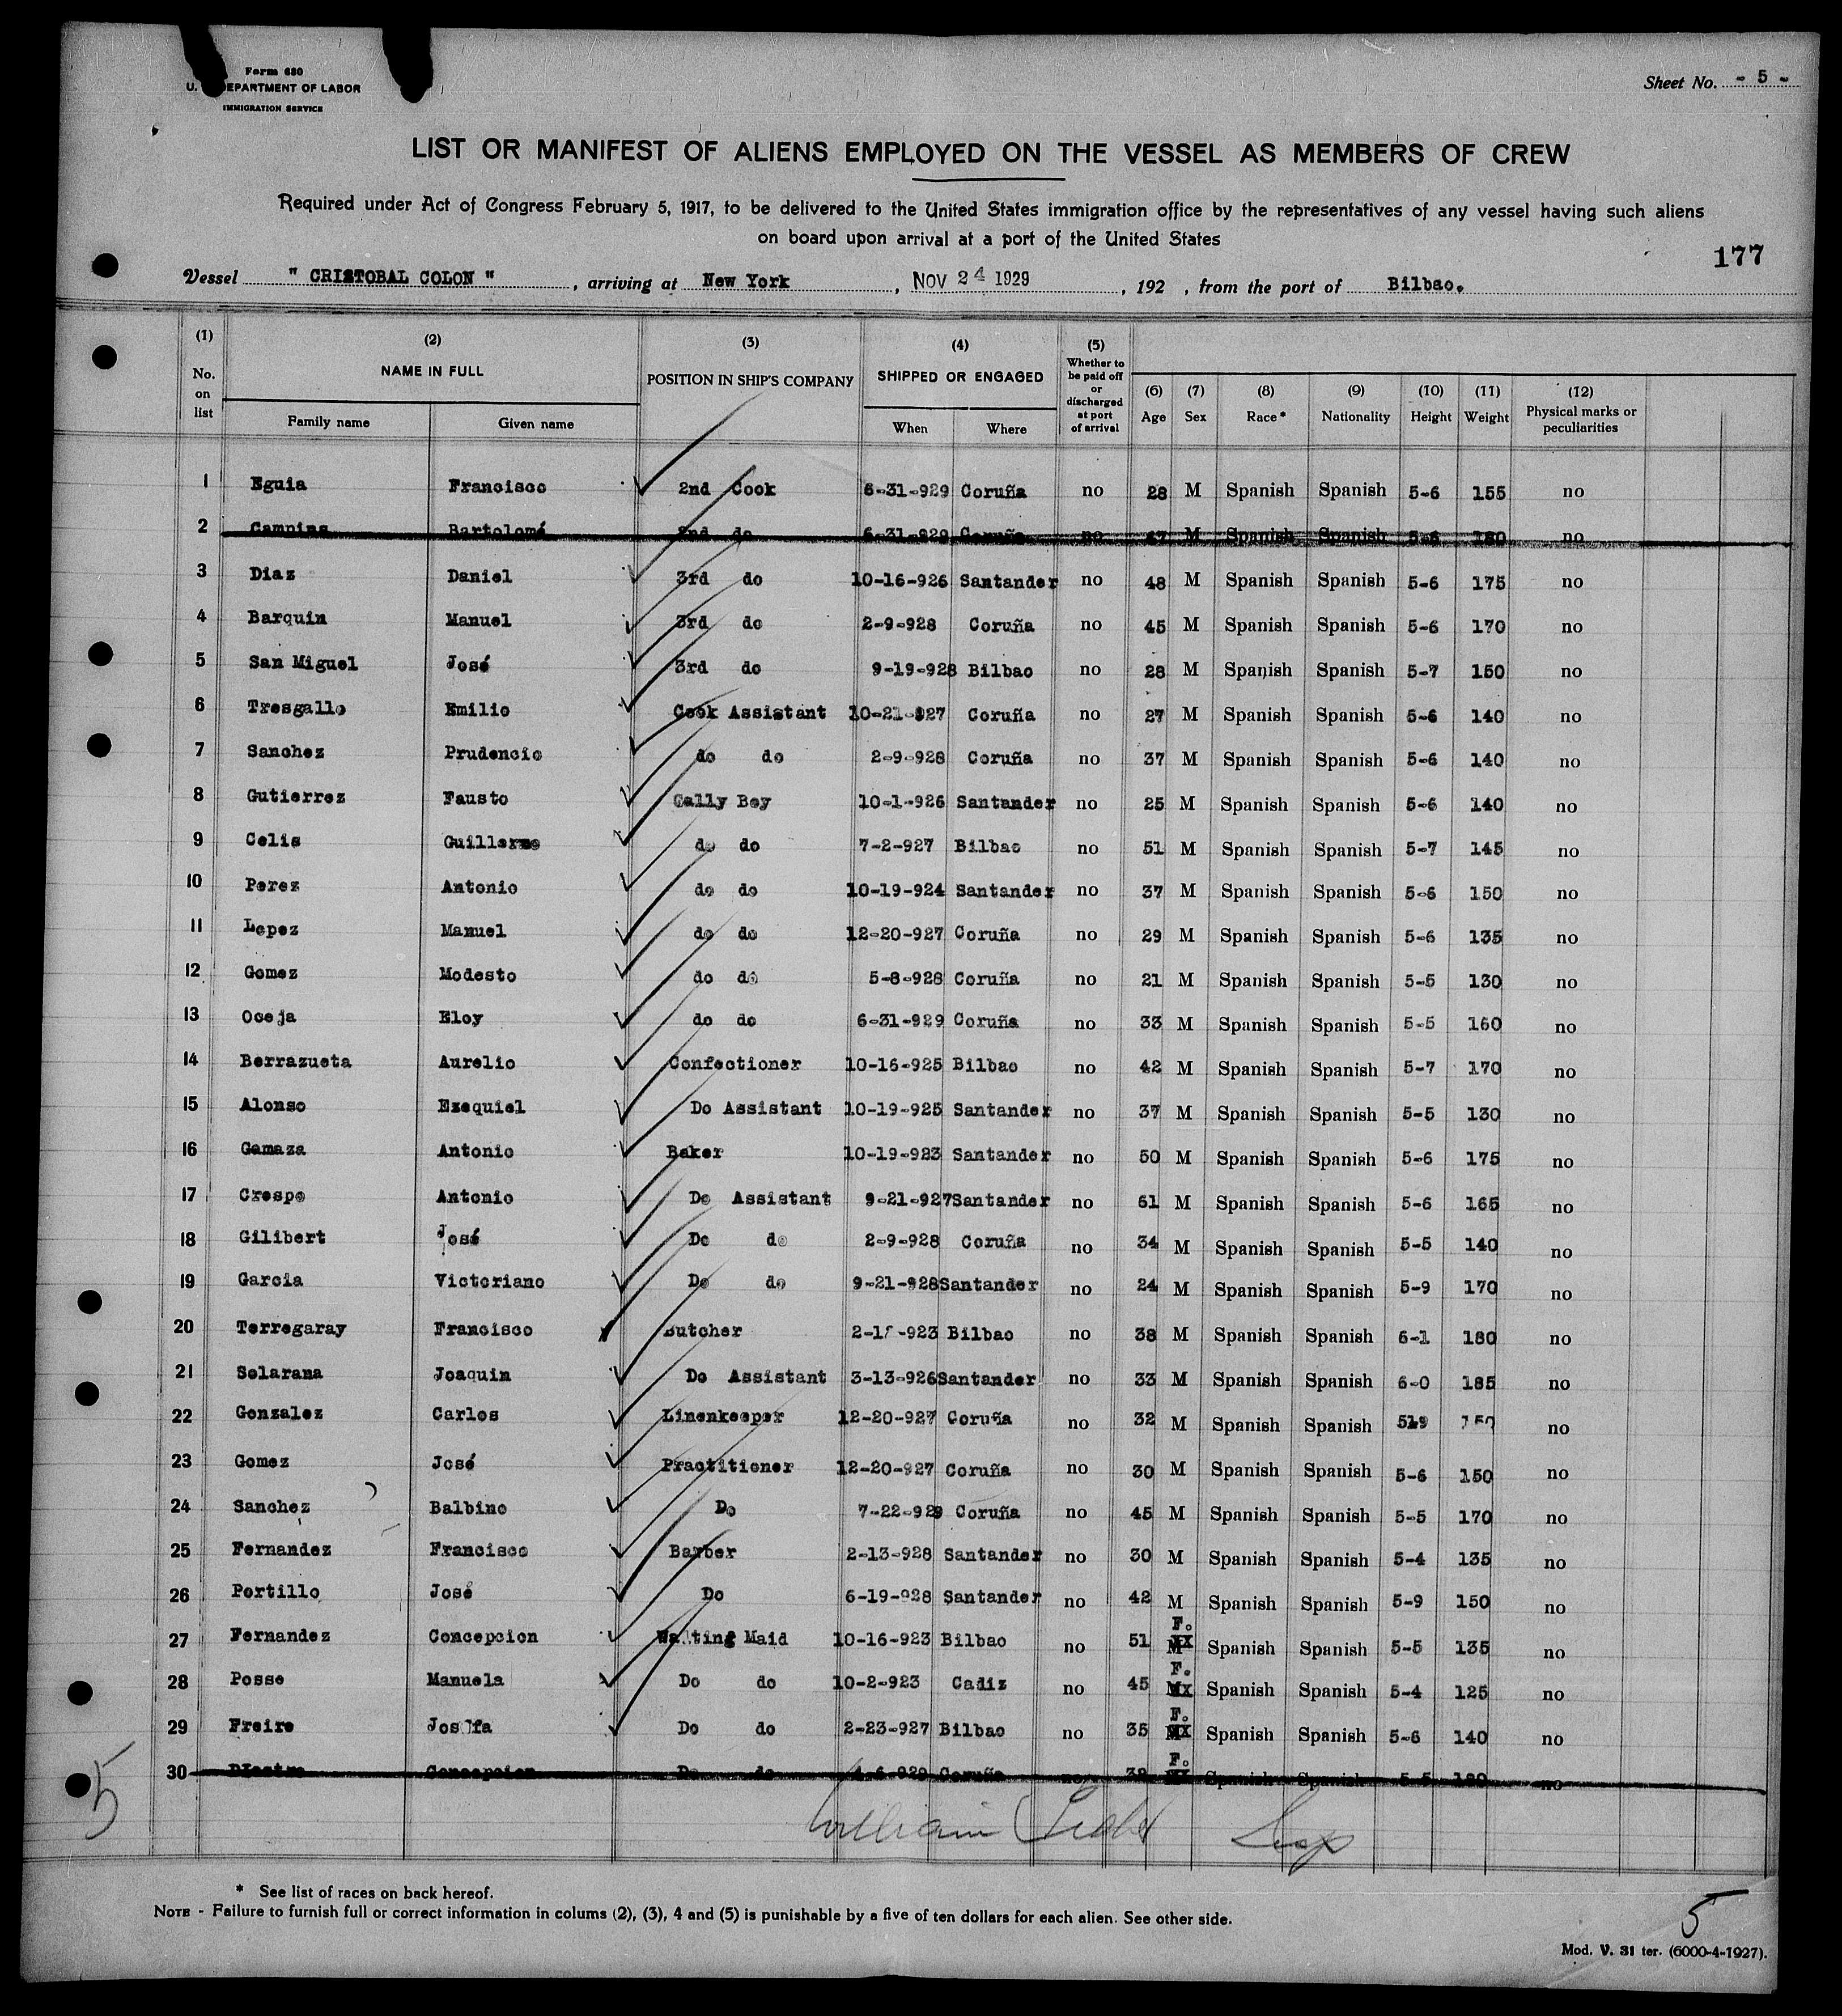 Form 680
U. DEPARTMENT OF LABOR
IMMIGRATION SERVICE
Sheet No. - 5 -
LIST OR MANIFEST OF ALIENS EMPLOYED ON THE VESSEL AS MEMBERS OF CREW
Required under Act of Congress February 5, 1917, to be delivered to the United States immigration office by the representatives of any vessel having such aliens
on board upon arrival at a port of the United States
177
Vessel " CRISTOBAL COLON " , arriving at New York , NOV 24 1929 , 192 , from the port of Bilbao.
(1) No. on list
(2) NAME IN FULL Family name Given name
(3) POSITION IN SHIP'S COMPANY
(4) SHIPPED OR ENGAGED When Where
(5) Whether to be paid off or discharged at port of arrival
(6) Age (7) Sex (8) Race * (9) Nationality (10) Height (11) Weight (12) Physical marks or peculiarities
1 Eguia Francisco 2nd Cook 6-31-929 Coruña no 28 M Spanish Spanish 5-6 155 no
2 Campins Bartolomé 2nd do 6-31-929 Coruña no 47 M Spanish Spanish 5-6 180 no
3 Diaz Daniel 3rd do 10-16-926 Santander no 48 M Spanish Spanish 5-6 175 no
4 Barquin Manuel 3rd do 2-9-928 Coruña no 45 M Spanish Spanish 5-6 170 no
5 San Miguel José 3rd do 9-19-928 Bilbao no 28 M Spanish Spanish 5-7 150 no
6 Tresgallo Emilio Cook Assistant 10-21-927 Coruña no 27 M Spanish Spanish 5-6 140 no
7 Sanchez Prudencio do do 2-9-928 Coruña no 37 M Spanish Spanish 5-6 140 no
8 Gutierrez Fausto Gally Boy 10-1-926 Santander no 25 M Spanish Spanish 5-6 140 no
9 Celis Guillermo do do 7-2-927 Bilbao no 51 M Spanish Spanish 5-7 145 no
10 Perez Antonio do do 10-19-924 Santander no 37 M Spanish Spanish 5-6 150 no
11 Lopez Manuel do do 12-20-927 Coruña no 29 M Spanish Spanish 5-6 135 no
12 Gomez Modesto do do 5-8-928 Coruña no 21 M Spanish Spanish 5-5 130 no
13 Oceja Eloy do do 6-31-929 Coruña no 33 M Spanish Spanish 5-5 160 no
14 Berrazueta Aurelio Confectioner 10-16-925 Bilbao no 42 M Spanish Spanish 5-7 170 no
15 Alonso Ezequiel Do Assistant 10-19-925 Santander no 37 M Spanish Spanish 5-5 130 no
16 Gamaza Antonio Baker 10-19-923 Santander no 50 M Spanish Spanish 5-6 175 no
17 Crespo Antonio Do Assistant 9-21-927 Santander no 51 M Spanish Spanish 5-6 165 no
18 Gilibert José Do do 2-9-928 Coruña no 34 M Spanish Spanish 5-5 140 no
19 Garcia Victoriano Do do 9-21-928 Santander no 24 M Spanish Spanish 5-9 170 no
20 Terregaray Francisco Butcher 2-1 -923 Bilbao no 38 M Spanish Spanish 6-1 180 no
21 Solarana Joaquin Do Assistant 3-13-926 Santander no 33 M Spanish Spanish 6-0 185 no
22 Gonzalez Carlos Linenkeeper 12-20-927 Coruña no 32 M Spanish Spanish 519 150 no
23 Gomez José Practitioner 12-20-927 Coruña no 30 M Spanish Spanish 5-6 150 no
24 Sanchez Balbino Do 7-22-929 Coruña no 45 M Spanish Spanish 5-5 170 no
25 Fernandez Francisco Barber 2-13-928 Santander no 30 M Spanish Spanish 5-4 135 no
26 Portillo José Do 6-19-928 Santander no 42 M Spanish Spanish 5-9 150 no
27 Fernandez Concepcion Waiting Maid 10-16-923 Bilbao no 51 F. Spanish Spanish 5-5 135 no
28 Posse Manuela Do do 10-2-923 Cadiz no 45 F. Spanish Spanish 5-4 125 no
29 Freire Josefa Do do 2-23-927 Bilbao no 35 F. Spanish Spanish 5-6 140 no
30 Concepcion Do do 4-6-929 Coruña no 38 F. Spanish Spanish 5-5 180 no
5
William
* See list of races on back hereof.
NOTE - Failure to furnish full or correct information in colums (2), (3), 4 and (5) is punishable by a five of ten dollars for each alien. See other side.
5
Mod. V. 31 ter. (6000-4-1927).